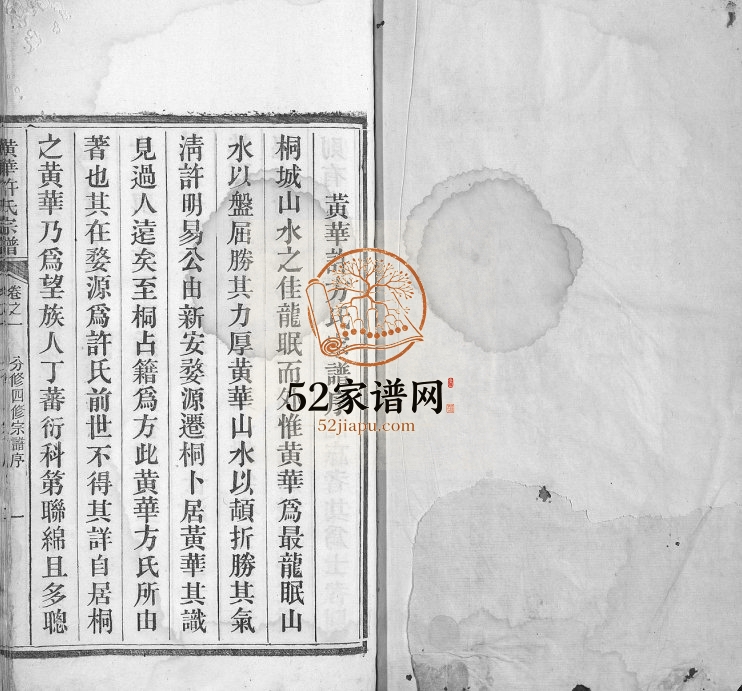 黃華許方氏宗譜序
桐城山水之佳龍眠而外惟黃華爲最龍眠山
水以盤屈勝其力厚黃華山水以頓折勝其氣
淸許明易公由新安婺源遷桐卜居黃華其識
見過人遠矣至桐占籍爲方此黃華方氏所由
著也其在婺源爲許氏前世不得其詳自居桐
之黃華乃爲望族人丁蕃衍科第聯綿且多聰
黃華許氏宗譜
卷之一
分修四修宗譜序
一
52家谱网
52jiapu.com